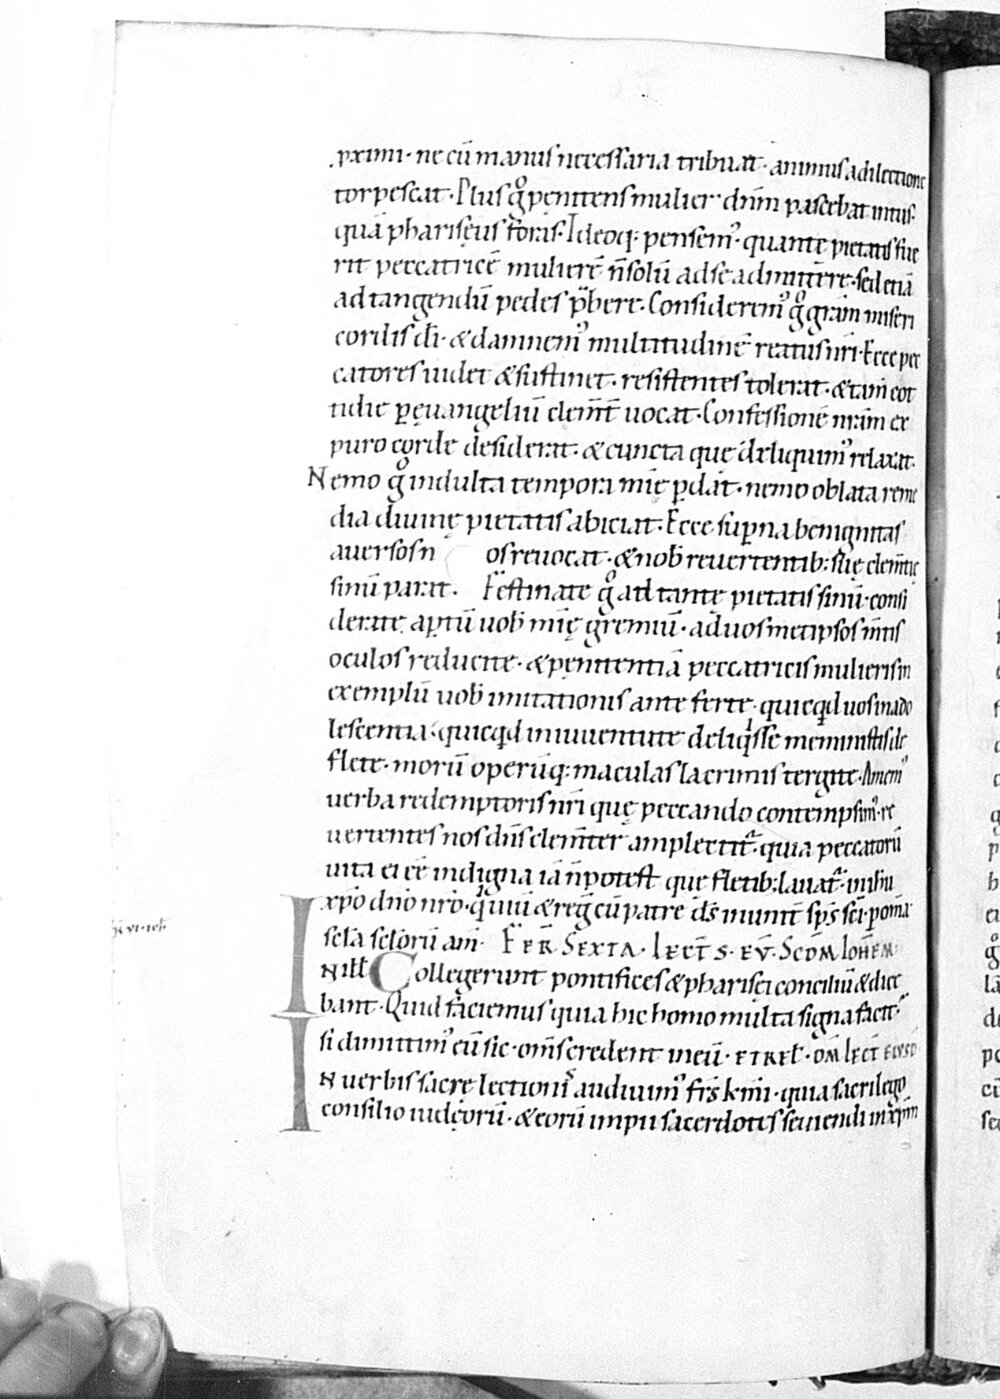 ꝓximi· ne cū manus necessaria tribuat· animus a dilectione
torpescat· Plus gͦ pęnitens mulier dn̄m pascebat intus·
quā phariseus foras· Ideoq; pensem᷒· quantę pietatis fue
rit peccatricē mulierē n̄ solū ad se admittere· sed etiā
ad tangendū pedes p̄bere· Considerem᷒ gͦ grām miseri
cordis dī· & damnem᷒ multitudinē reatus nr̄i· Ecce pec
catores uidet & sustinet· resistentes tolerat· & tam̄ cot
tidie ꝑ euangeliū clem̄t uocat· Confessionē nr̄am ex
puro corde desiderat· & cuncta que deliquim᷒ relaxat·
Nemo gͦ indulta tempora mīę ꝑdat· nemo oblata reme
dia diuinę pietatis abiciat· Ecce suꝑna benignitas
auersos n os reuocat· & nob̄ reuertentib; suę clem̄tię
sinū parat· Festinate gͦ ad tantę pietatis sinū· consi
derate aꝑtū uob̄ mīę gremiū· ad uos metipsos m̄tis
oculos reducite· & pęnitentiā peccatricis mulieris in
exemplū uob̄ imitationis ante ferte· quicqͥd uos in ado
lescentia· quicqͥd in iuuentute deliqͥsse meministis de
flete· morū operūq; maculas lacrimis tergite· Amem᷒
uerba redemptoris nr̄i quę peccando contempsim᷒· re
uertentes nos dn̄s clem̄ter amplectit᷑· quia peccatorū
uita ei eē indigna iā n̄ potest que fletib; lauat᷑· in ihū
xp̄o dn̄o nr̄o· qͥ uiuit & reg̅ cū patre ds̄ in unit̄ sp̄s sc̄i· p om̄ia
sc̄la sc̄lorū am̄· FER SEXTA· LECT S· EV· SCDM IOHEM·
IN ILL̄ Collegerunt pontifices & pharisęi conciliū & dice
bant· Quid facimus quia hic homo multa signa facit·
si dimittim᷒ eū sic· om̄s credent in eū· ET REL̄· OM LECT EIVSD
IN uerbis sacrę lectionis audiuim᷒ fr̄s k̄mi· quia sacrilego
consilio iudęorū· & eorū impii sacerdotes seuiendi in xp̄m